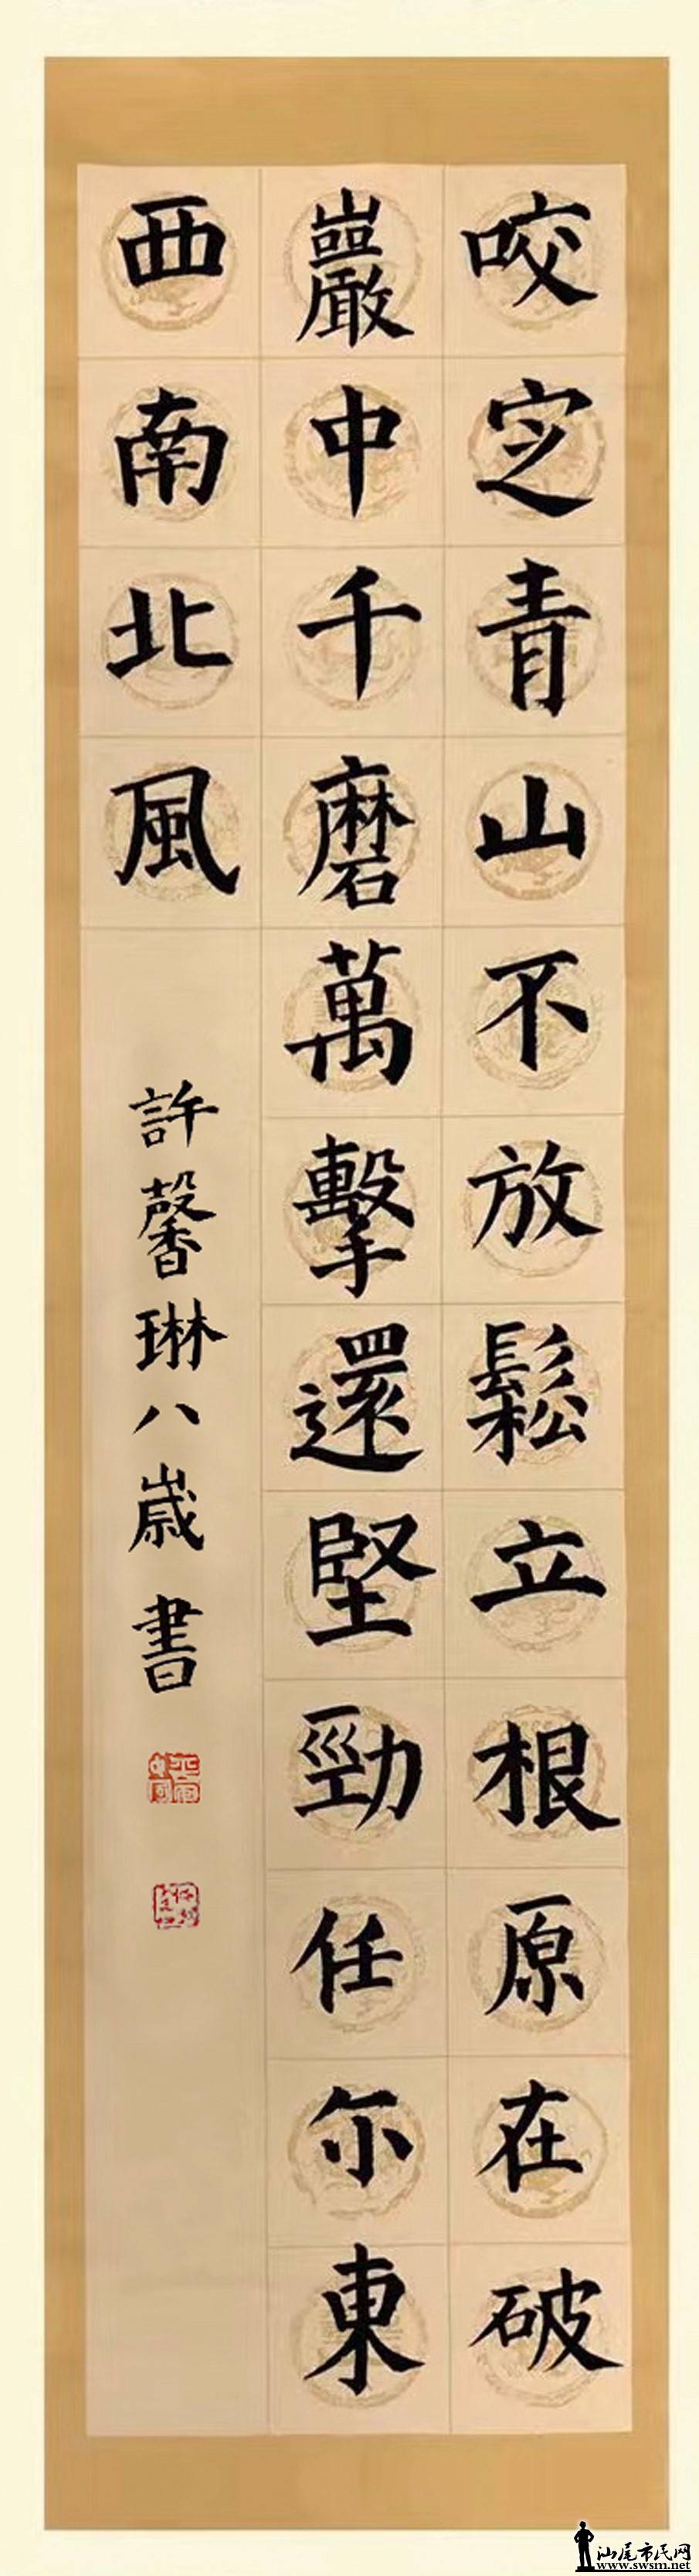 咬定青山不放鬆立根原在破
巖中千磨萬擊還堅勁任尔東
西南北風
許馨琳八歲書
汕尾市民网
www.swsm.net